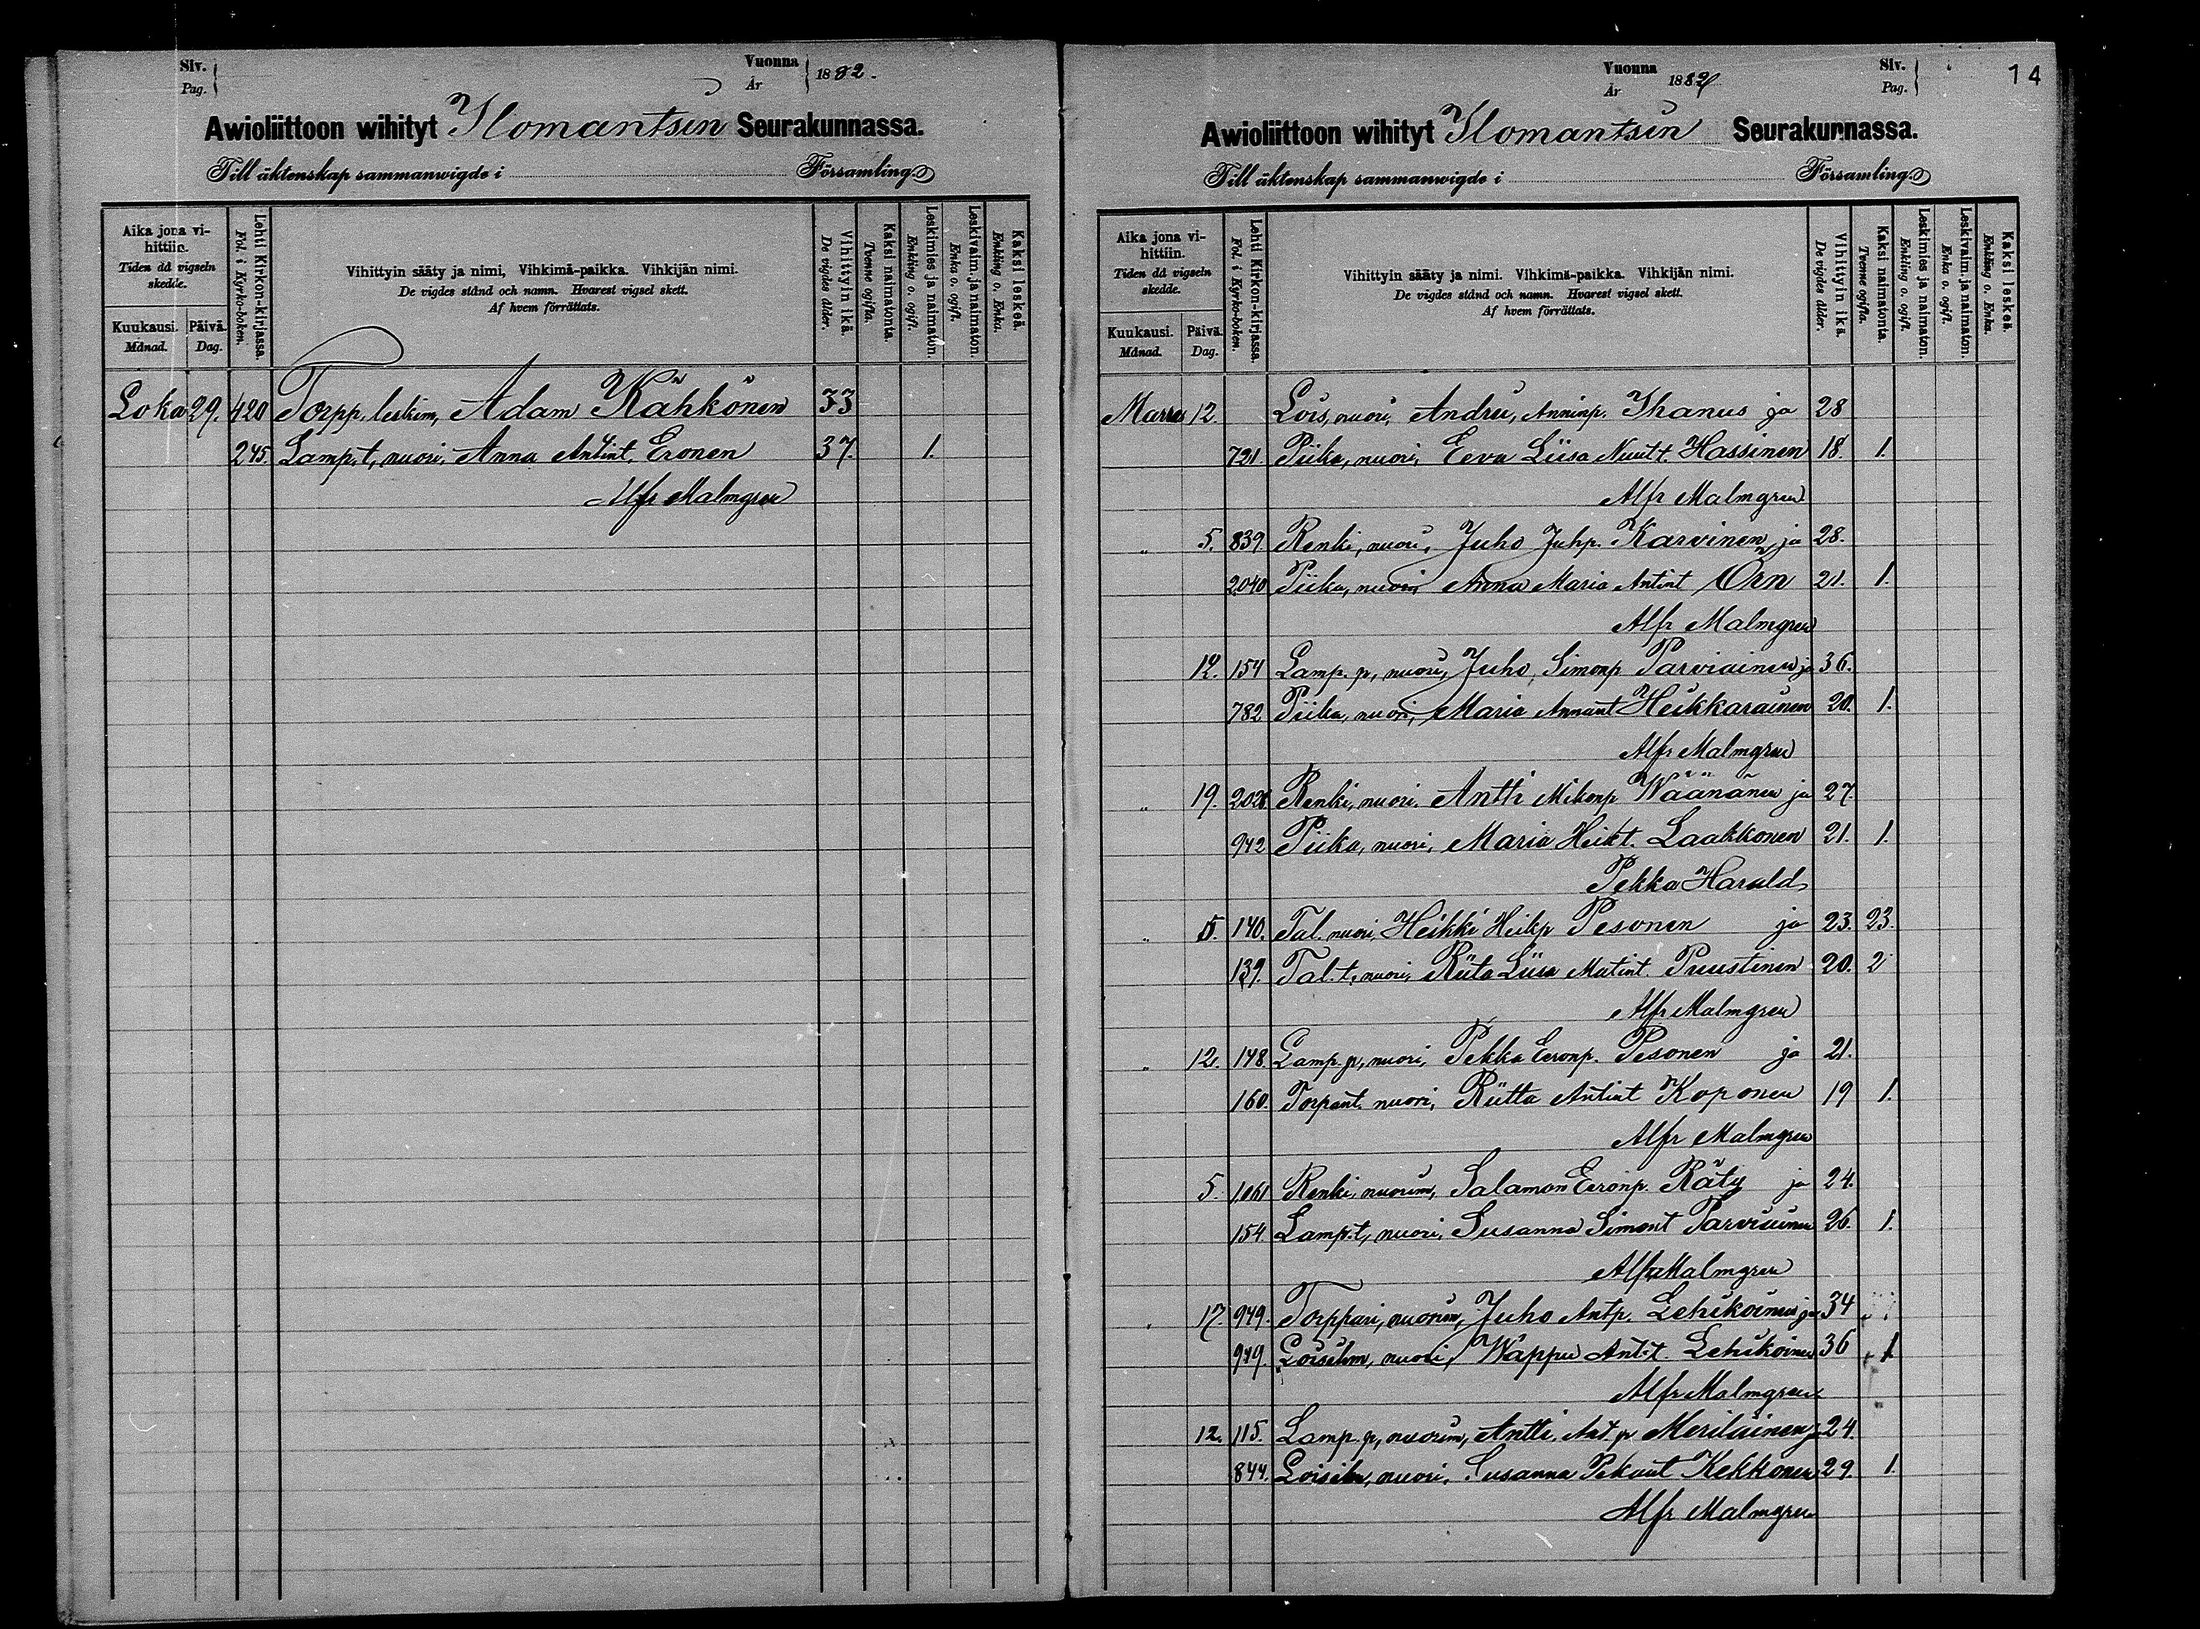 Siv.
Pag.
Vuonna
År
1882.
Awioliittoon wihityt Ilomantsin Seurakunnassa.
Till äktenskap sammanwigde i Församling.
Aika jona vihittiin.
Tiden då vigseln skedde.
Kuukausi.
Månad.
Päivä.
Dag.
Lehti Kirkon-kirjassa.
Fol. i Kyrko-boken.
Vihittyin sääty ja nimi, Vihkimä-paikka. Vihkijän nimi.
De vigdes stånd och namn. Hvarest vigsel skett.
Af hvem förrättats.
Vihittyin ikä.
De vigdes ålder.
Kaksi naimatonta.
Tvenne ogifta.
Leskimies ja naimaton.
Enkling o. ogift.
Leskivaim. ja naimaton.
Enka o. ogift.
Kaksi leskeä.
Enkling o. Enka.
Loka 29. 420 Torpp. leskim, Adam Kähkönen 33
245. Lamp.t, nuori, Anna Antint. Eronen 37. 1.
Alfr Malmgren
Vuonna
År
1882
Siv.
Pag.
14
Awioliittoon wihityt Ilomantsin Seurakunnassa.
Till äktenskap sammanwigde i Församling.
Aika jona vihittiin.
Tiden då vigseln skedde.
Kuukausi.
Månad.
Päivä.
Dag.
Lehti Kirkon-kirjassa.
Fol. i Kyrko-boken.
Vihittyin sääty ja nimi. Vihkimä-paikka. Vihkijän nimi.
De vigdes stånd och namn. Hvarest vigsel skett.
Af hvem förrättats.
Vihittyin ikä.
De vigdes ålder.
Kaksi naimatonta.
Tvenne ogifta.
Leskimies ja naimaton.
Enkling o. ogift.
Leskivaim. ja naimaton.
Enka o. ogift.
Kaksi leskeä.
Enkling o. Enka.
Marras 12. Lois, nuori, Andrei, Anninp. Ihanus ja 28
721. Piika, nuori, Eeva Liisa Nuutt. Hassinen 18. 1.
Alfr Malmgren
" 5. 839. Renki, nuori, Juho Juhp. Karvinen ja 28.
2040 Piika, nuori Anna Maria Antint Orn 21. 1.
Alfr Malmgren
12. 154 Lamp. p, nuori, Juho, Simonp Parviainen ja 36.
782 Piika, nuori, Maria Heikkarainen 20. 1.
Alfr Malmgren
" 19. Renki, nuori, Antti Mikonp Wäänänen ja 27.
942 Piika, nuori, Maria Heikt. Laakkonen 21. 1.
Pekka Harald
" 5. 140. Tal. nuori, Heikki Heikp Pesonen ja 23. 23.
139. Tal.t, nuori, Riita Liisa Matint Puustinen 20. 2
Alfr Malmgren
" 12. 148. Lamp. p, nuori, Pekka Eeronp. Pesonen ja 21.
160. Torpant. nuori, Riitta Antint Koponen 19 1.
Alfr Malmgren
5. 1061 Renki, nuorim, Salamon Eeronp. Räty ja 24.
154. Lamp.t, nuori, Susanna Simont Parviainen 26. 1.
Alfr Malmgren
" 17. 949. Torppari, nuorim, Juho Antp. Lehikoinen ja 34
949. nuori, Wappu Ant.t. Lehikoinen 36 1
Alfr Malmgren
12. 115. Lamp. p, nuorim, Antti, Ant. p Meriläinen ja 24.
844. nuori, Susanna Pekant Kekkonen 29. 1.
Alfr Malmgren